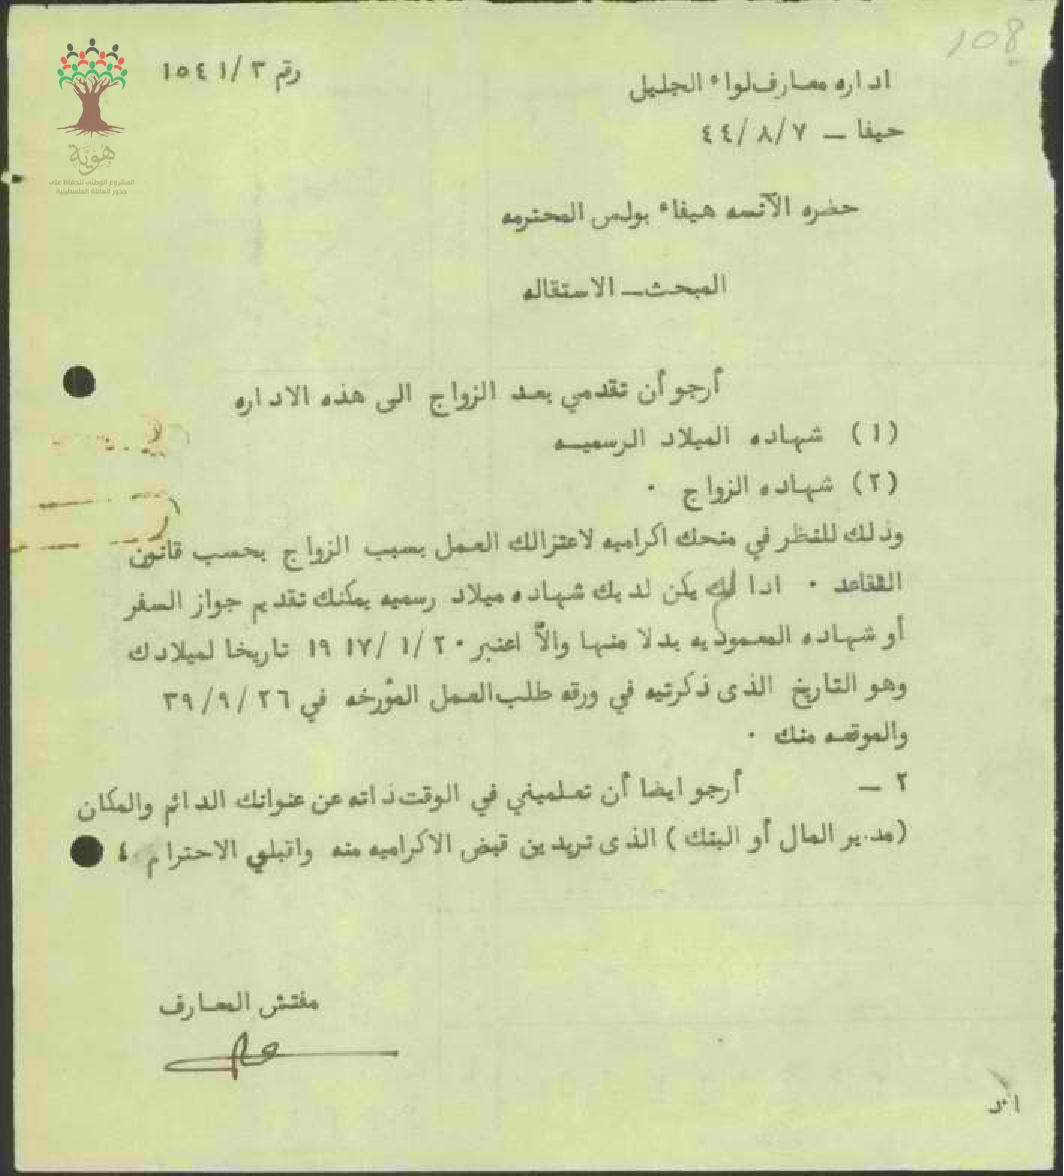 108
رقم ٣/١٥٤١
اداره معارف لواء الجليل
حيفا – ٤٤/٨/٧
هوية
المشروع الوطني للحفاظ على
جذور العائلة الفلسطينية
حضره الآنسه هيفاء بولس المحترمه
المبحث – الاستقاله
أرجو أن تقدمي بعد الزواج الى هذه الاداره
(١) شهاده الميلاد الرسميه
(٢) شهاده الزواج ٠
وذلك للنظر في منحك اكراميه لاعتزالك العمل بسبب الزواج بحسب قانون
التقاعد ٠ اذا لم يكن لديك شهاده ميلاد رسميه يمكنك تقديم جواز السفر
أو شهاده المعموديه بدلا منها والاّ اعتبر ١٩١٧/١/٢٠ تاريخا لميلادك
وهو التاريخ الذى ذكرتيه في ورقه طلب العمل المؤرخه في ٣٩/٩/٢٦
والموقعه منك ٠
٢ – أرجو ايضا أن تعلميني في الوقت ذاته عن عنوانك الدائم والمكان
(مدير المال أو البنك) الذى تريدين قبض الاكراميه منه واقبلي الاحترام ٤
مفتش المعارف